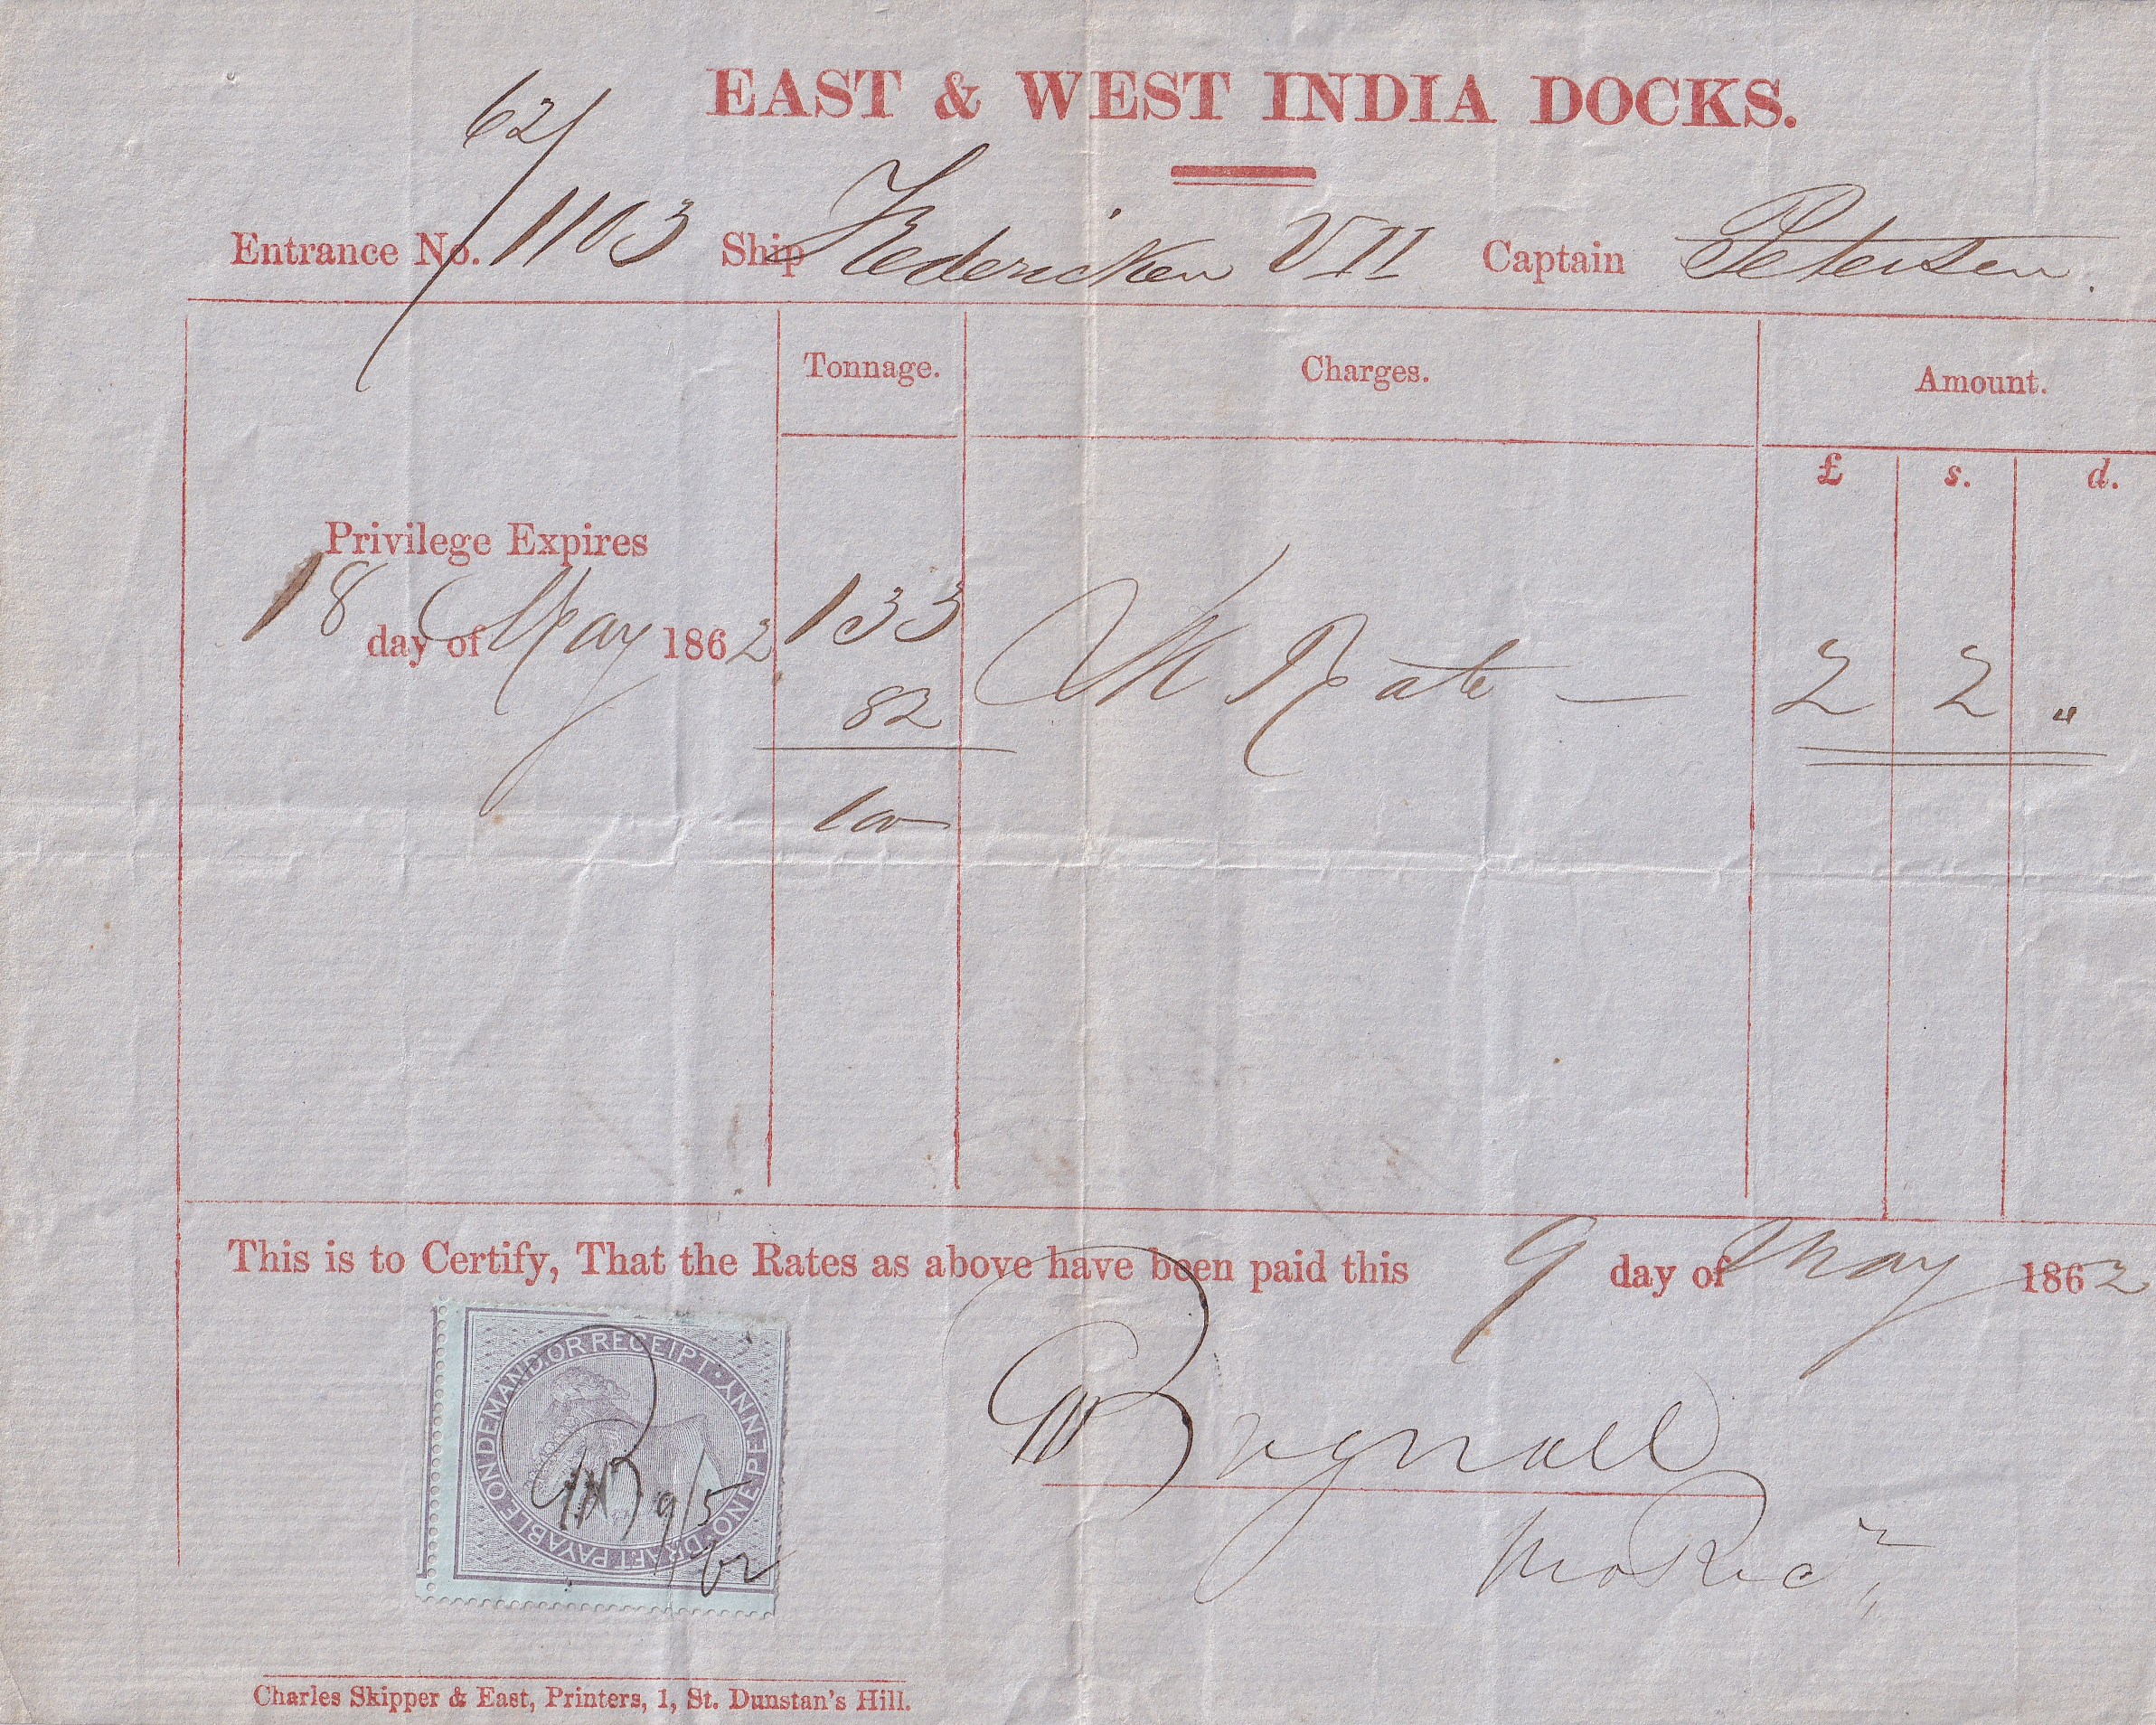 EAST & WEST INDIA DOCKS.
62/
Entrance No. 1103 Ship Fredericken VII Captain Petersen.
Tonnage. Charges. Amount.
£ s. d.
Privilege Expires
18 day of May 1862
133 Rate — 2 2 "
82
100
This is to Certify, That the Rates as above have been paid this 9 day of May 1862
DRAFT PAYABLE ON DEMAND OR RECEIPT · ONE PENNY
9/5
62
Bagnall
pro Recr
Charles Skipper & East, Printers, 1, St. Dunstan's Hill.